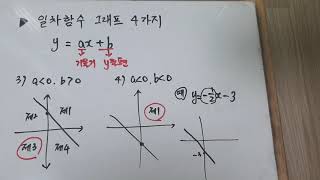 ▶ 일차함수 그래프 4가지
y = ax + b
기울기 y절편
3) a<0, b>0
4) a<0, b<0
예 y=(-1/2)x-3
제2 제1
제3 제4
제1
-3